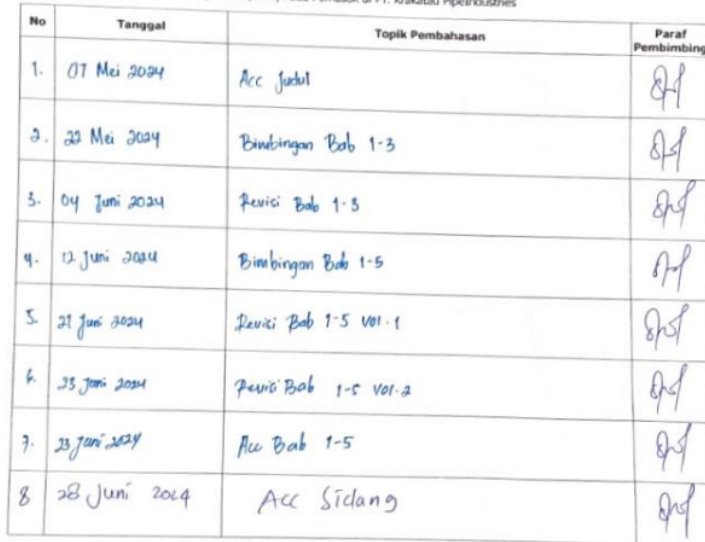 di PT. Krakatau PipeIndustries
No Tanggal Topik Pembahasan Paraf Pembimbing
1. 07 Mei 2024 Acc Judul
2. 22 Mei 2024 Bimbingan Bab 1-3
3. 04 Juni 2024 Revisi Bab 1-3
4. 12 Juni 2024 Bimbingan Bab 1-5
5. 21 Juni 2024 Revisi Bab 1-5 Vol.1
6. 23 Juni 2024 Revisi Bab 1-5 Vol.2
7. 23 Juni 2024 Acc Bab 1-5
8 28 Juni 2024 Acc Sidang